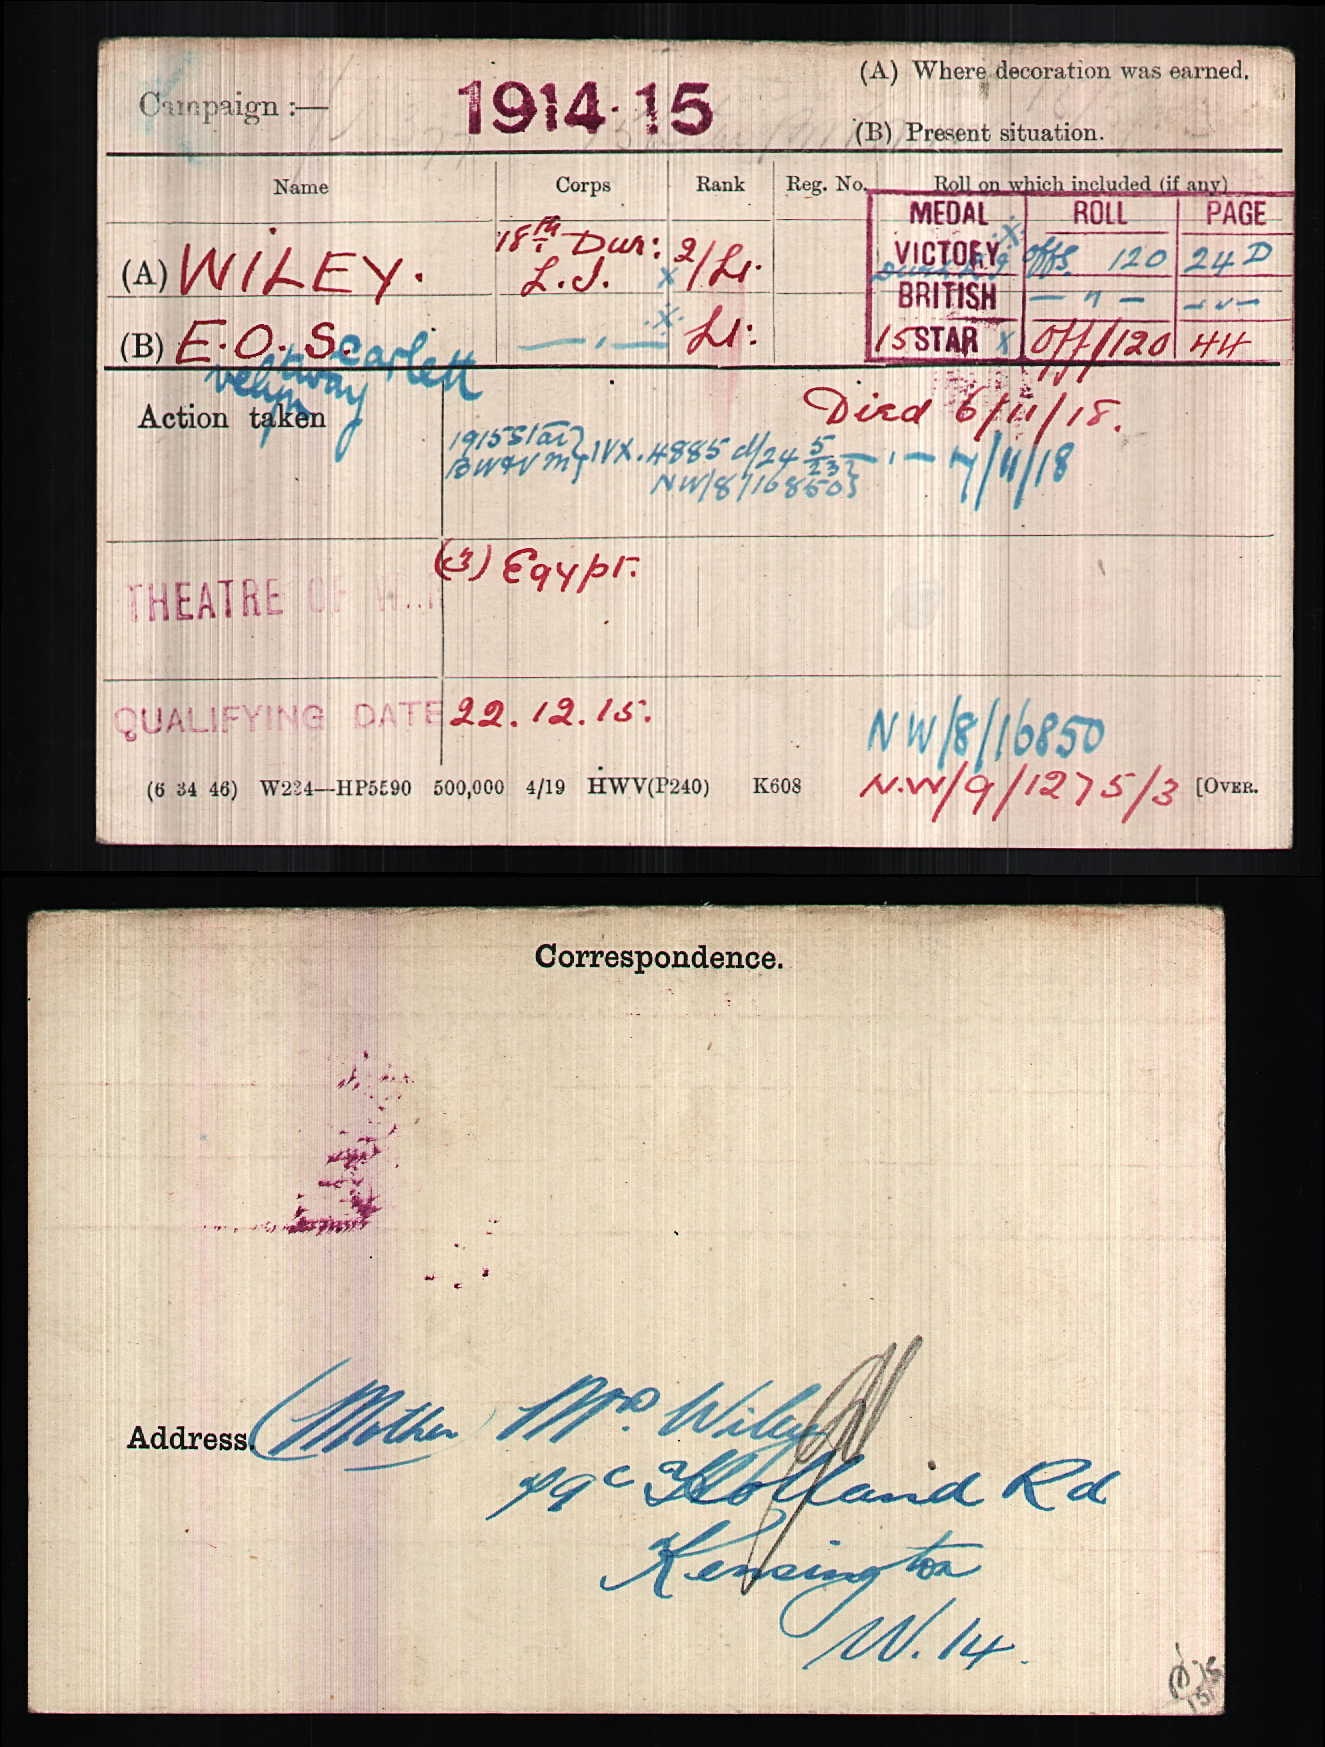 Campaign :— 1914-15
(A) Where decoration was earned.
(B) Present situation.
Name Corps Rank Reg. No. Roll on which included (if any)
MEDAL ROLL PAGE
(A) WILEY. 18th Dur: L.I. x 2/Lt.
VICTORY x offs. 120 24 D
BRITISH — " — — " —
(B) E. O. S. carlett — " — x Lt.
15 STAR x Off/120 44
Action taken
Died 6/11/18.
1915 Star } IVX. 4885 d/24 5/23 } — " — 7/11/18
BW&VM } NW/8/16850 }
THEATRE OF
(3) Egypt.
QUALIFYING DATE 22.12.15.
NW/8/16850
(6 34 46) W234—HP5590 500,000 4/19 HWV(P240) K608 N.W/9/1275/3 [OVER.
Correspondence.
Address. (Mother) Mrs. Wiley
79c Holland Rd
Kensington
W. 14.